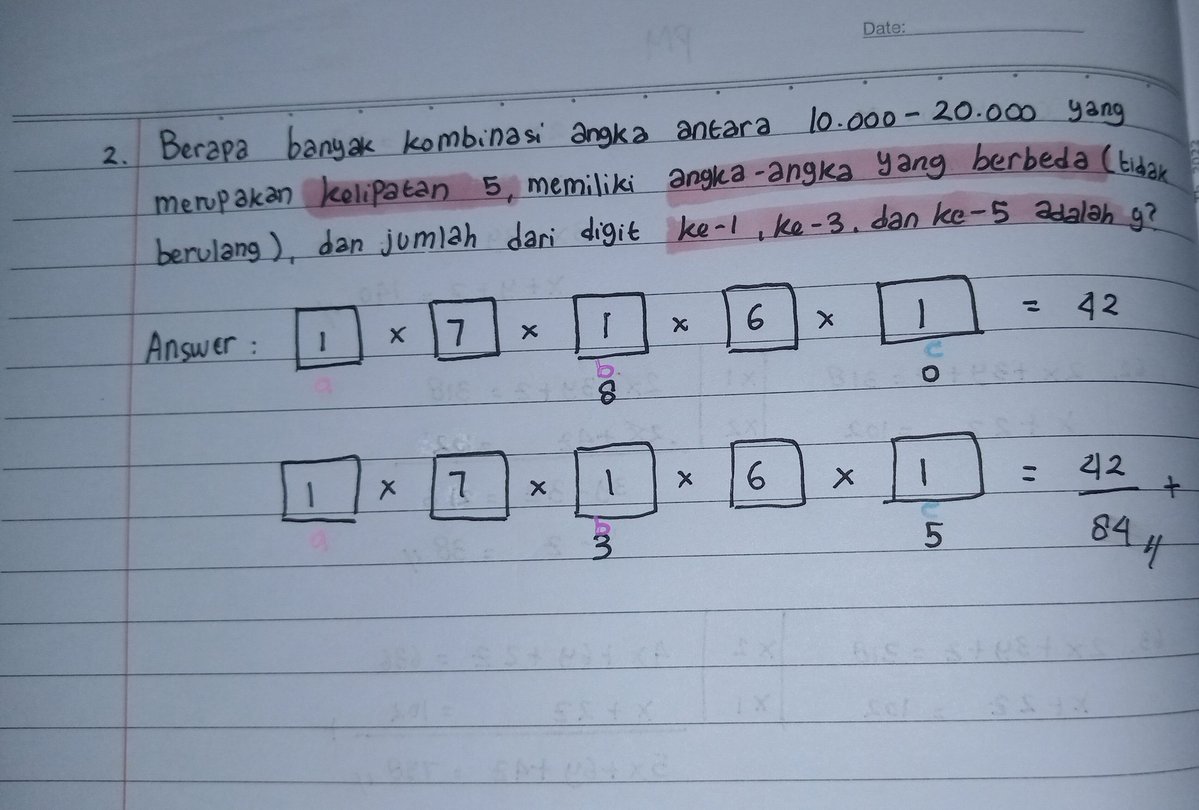 Date:
2. Berapa banyak kombinasi angka antara 10.000 - 20.000 yang
merupakan kelipatan 5, memiliki angka-angka yang berbeda (tidak
berulang), dan jumlah dari digit ke-1, ke-3, dan ke-5 adalah 9?
Answer : 1 × 7 × 1 × 6 × 1 = 42
a b c
8 0
1 × 7 × 1 × 6 × 1 = 42 +
a b c
3 5 84 //